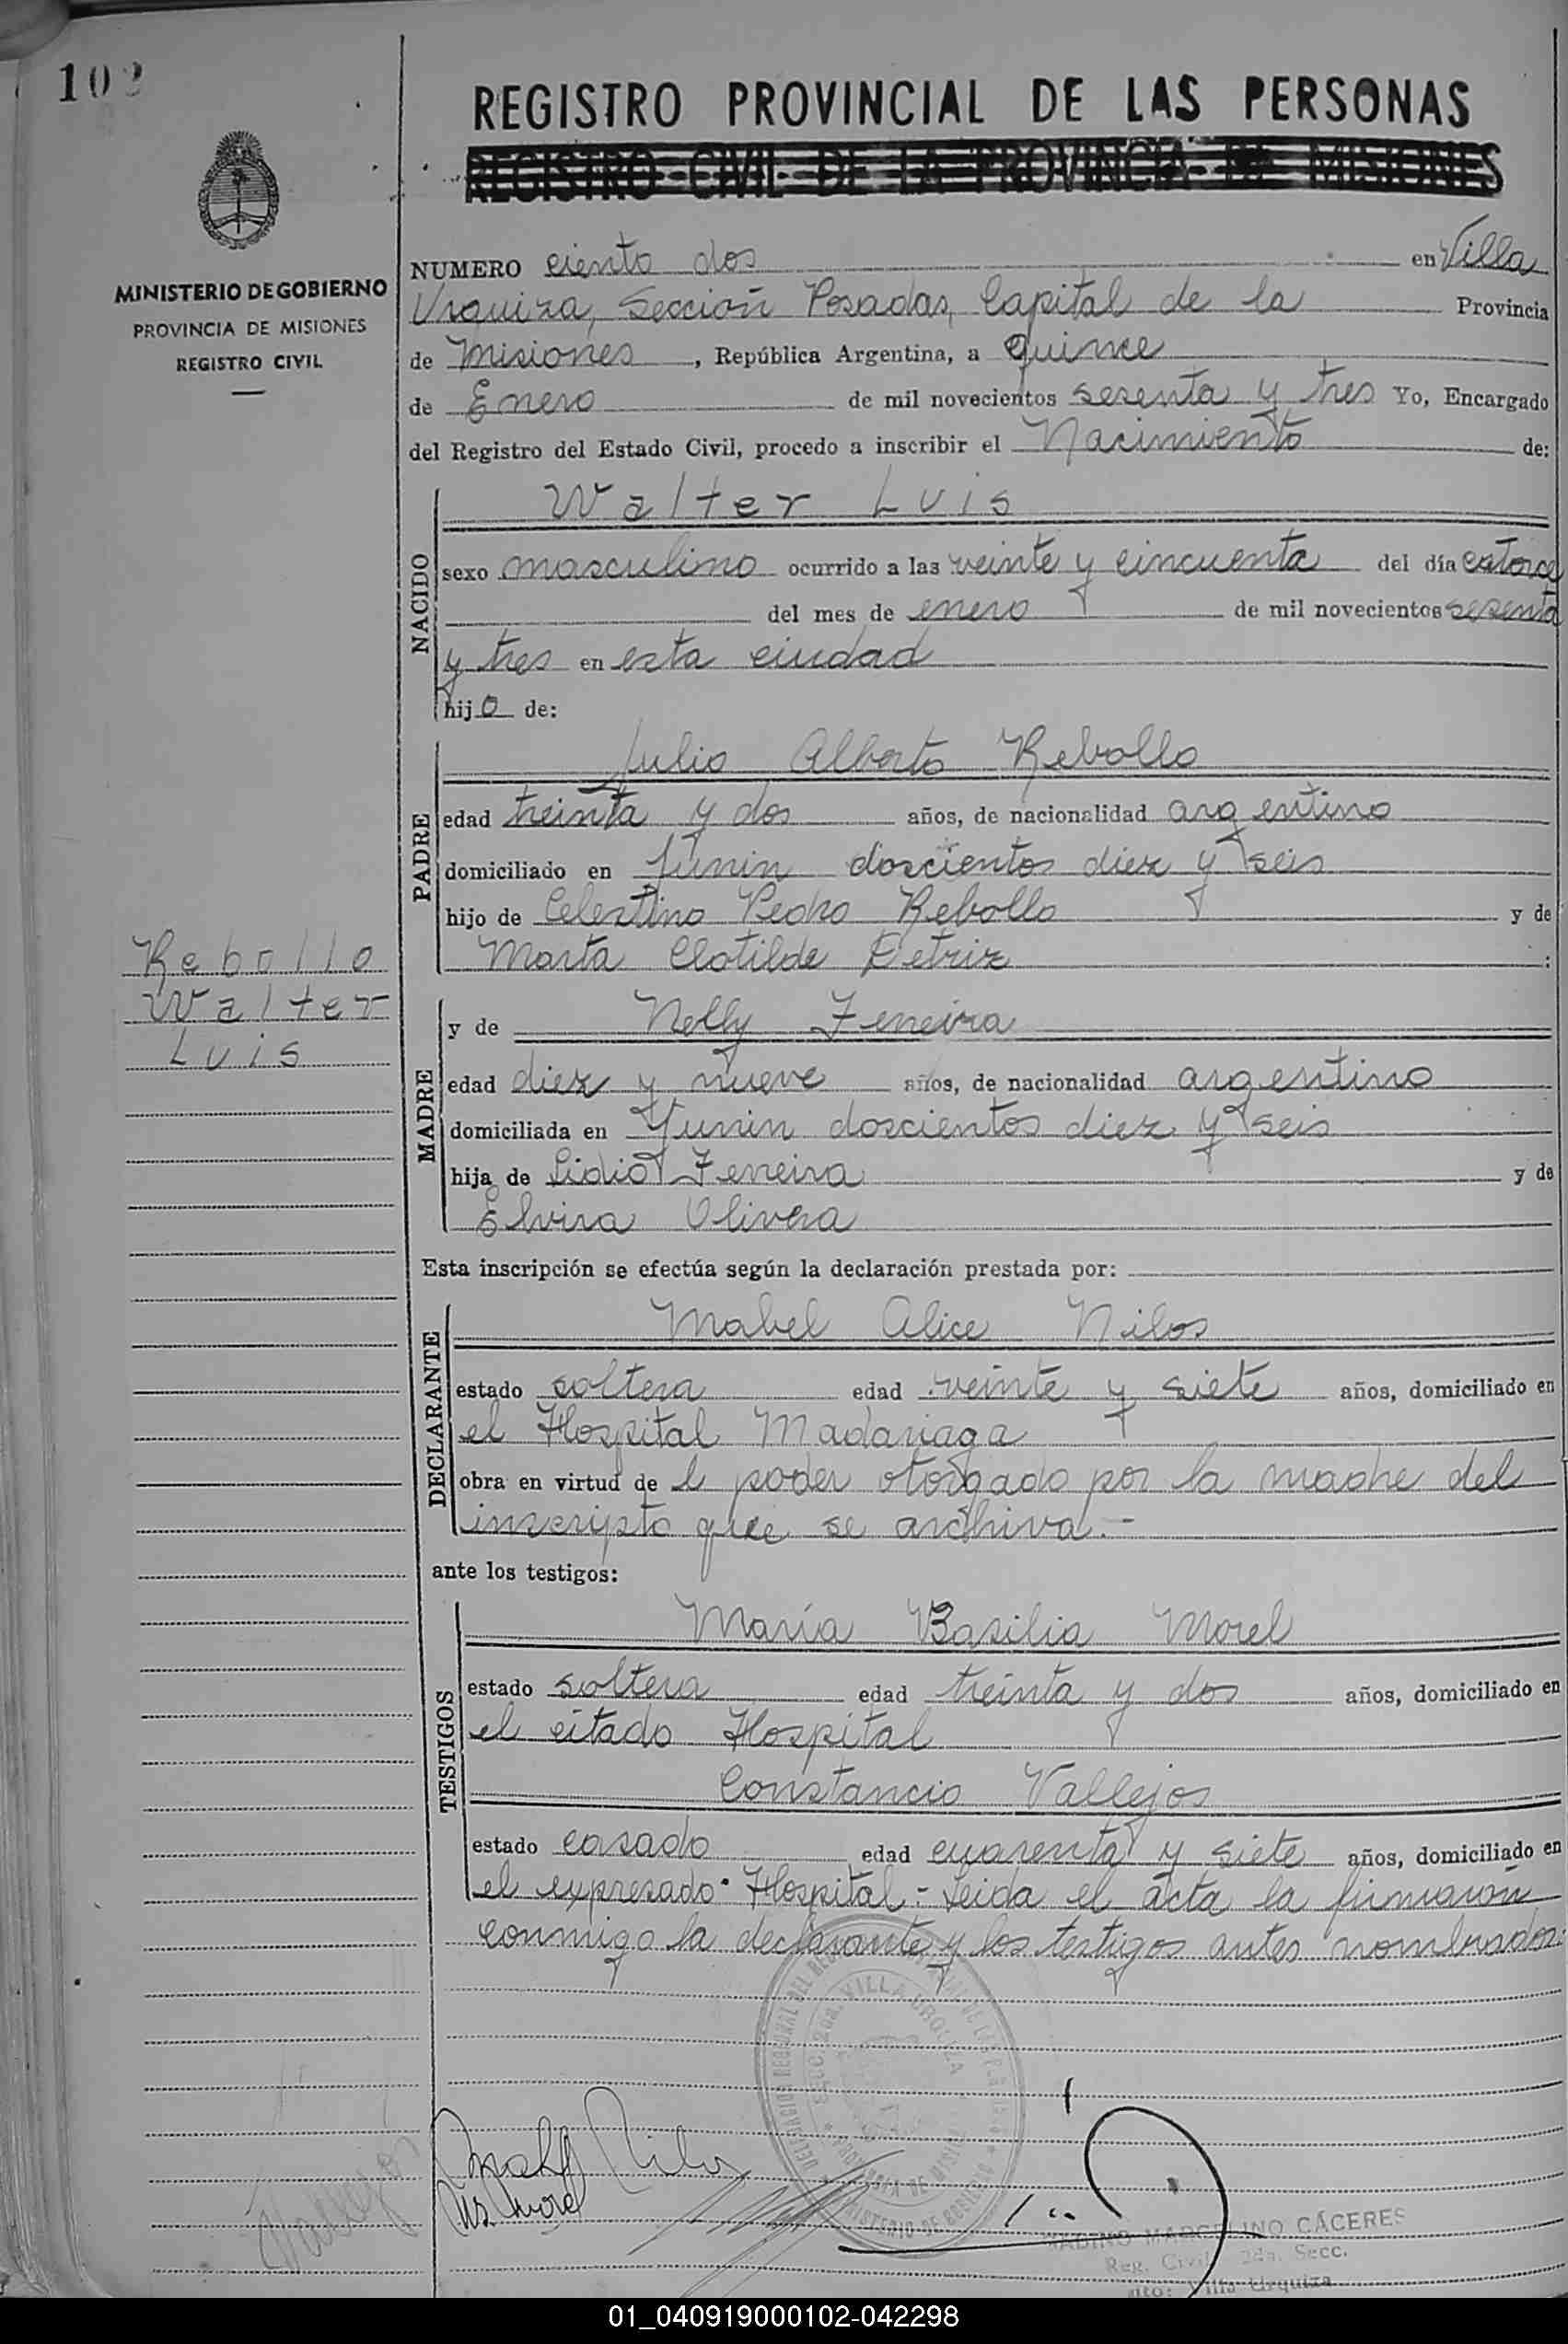 102
REGISTRO PROVINCIAL DE LAS PERSONAS
REGISTRO CIVIL DE LA PROVINCIA DE MISIONES
MINISTERIO DE GOBIERNO
PROVINCIA DE MISIONES
REGISTRO CIVIL
NUMERO ciento dos en Villa
Urquiza, Sección Posadas, Capital de la Provincia
de Misiones, República Argentina, a quince
de Enero de mil novecientos sesenta y tres Yo, Encargado
del Registro del Estado Civil, procedo a inscribir el Nacimiento de:
NACIDO
Walter Luis
sexo masculino ocurrido a las veinte y cincuenta del día catorce
del mes de enero de mil novecientos sesenta
y tres en esta ciudad
hijo de:
PADRE
Julio Alberto Rebollo
edad treinta y dos años, de nacionalidad argentino
domiciliado en Junin doscientos diez y seis
hijo de Celestino Pedro Rebollo y de
Marta Clotilde Detriz :
Rebollo
Walter
Luis
MADRE
y de Nelly Ferreira
edad diez y nueve años, de nacionalidad argentino
domiciliada en Junin doscientos diez y seis
hija de Lidio Ferreira y de
Elvira Olivera
Esta inscripción se efectúa según la declaración prestada por:
DECLARANTE
Mabel Alice Nilos
estado soltera edad veinte y siete años, domiciliado en
el Hospital Madariaga
obra en virtud de l poder otorgado por la madre del
inscripto que se archiva.-
ante los testigos:
TESTIGOS
María Basilia Morel
estado soltera edad treinta y dos años, domiciliado en
el citado Hospital
Constancio Vallejos
estado casado edad cuarenta y siete años, domiciliado en
el expresado Hospital.- Leida el acta la firmaron
conmigo la declarante y los testigos antes nombrados.
VILLA URQUIZA
Mabel Nilos
Ms. Morel
Vallejos
MARCELINO CÁCERES
Reg. Civil 2da. Secc.
Villa Urquiza
01_040919000102-042298